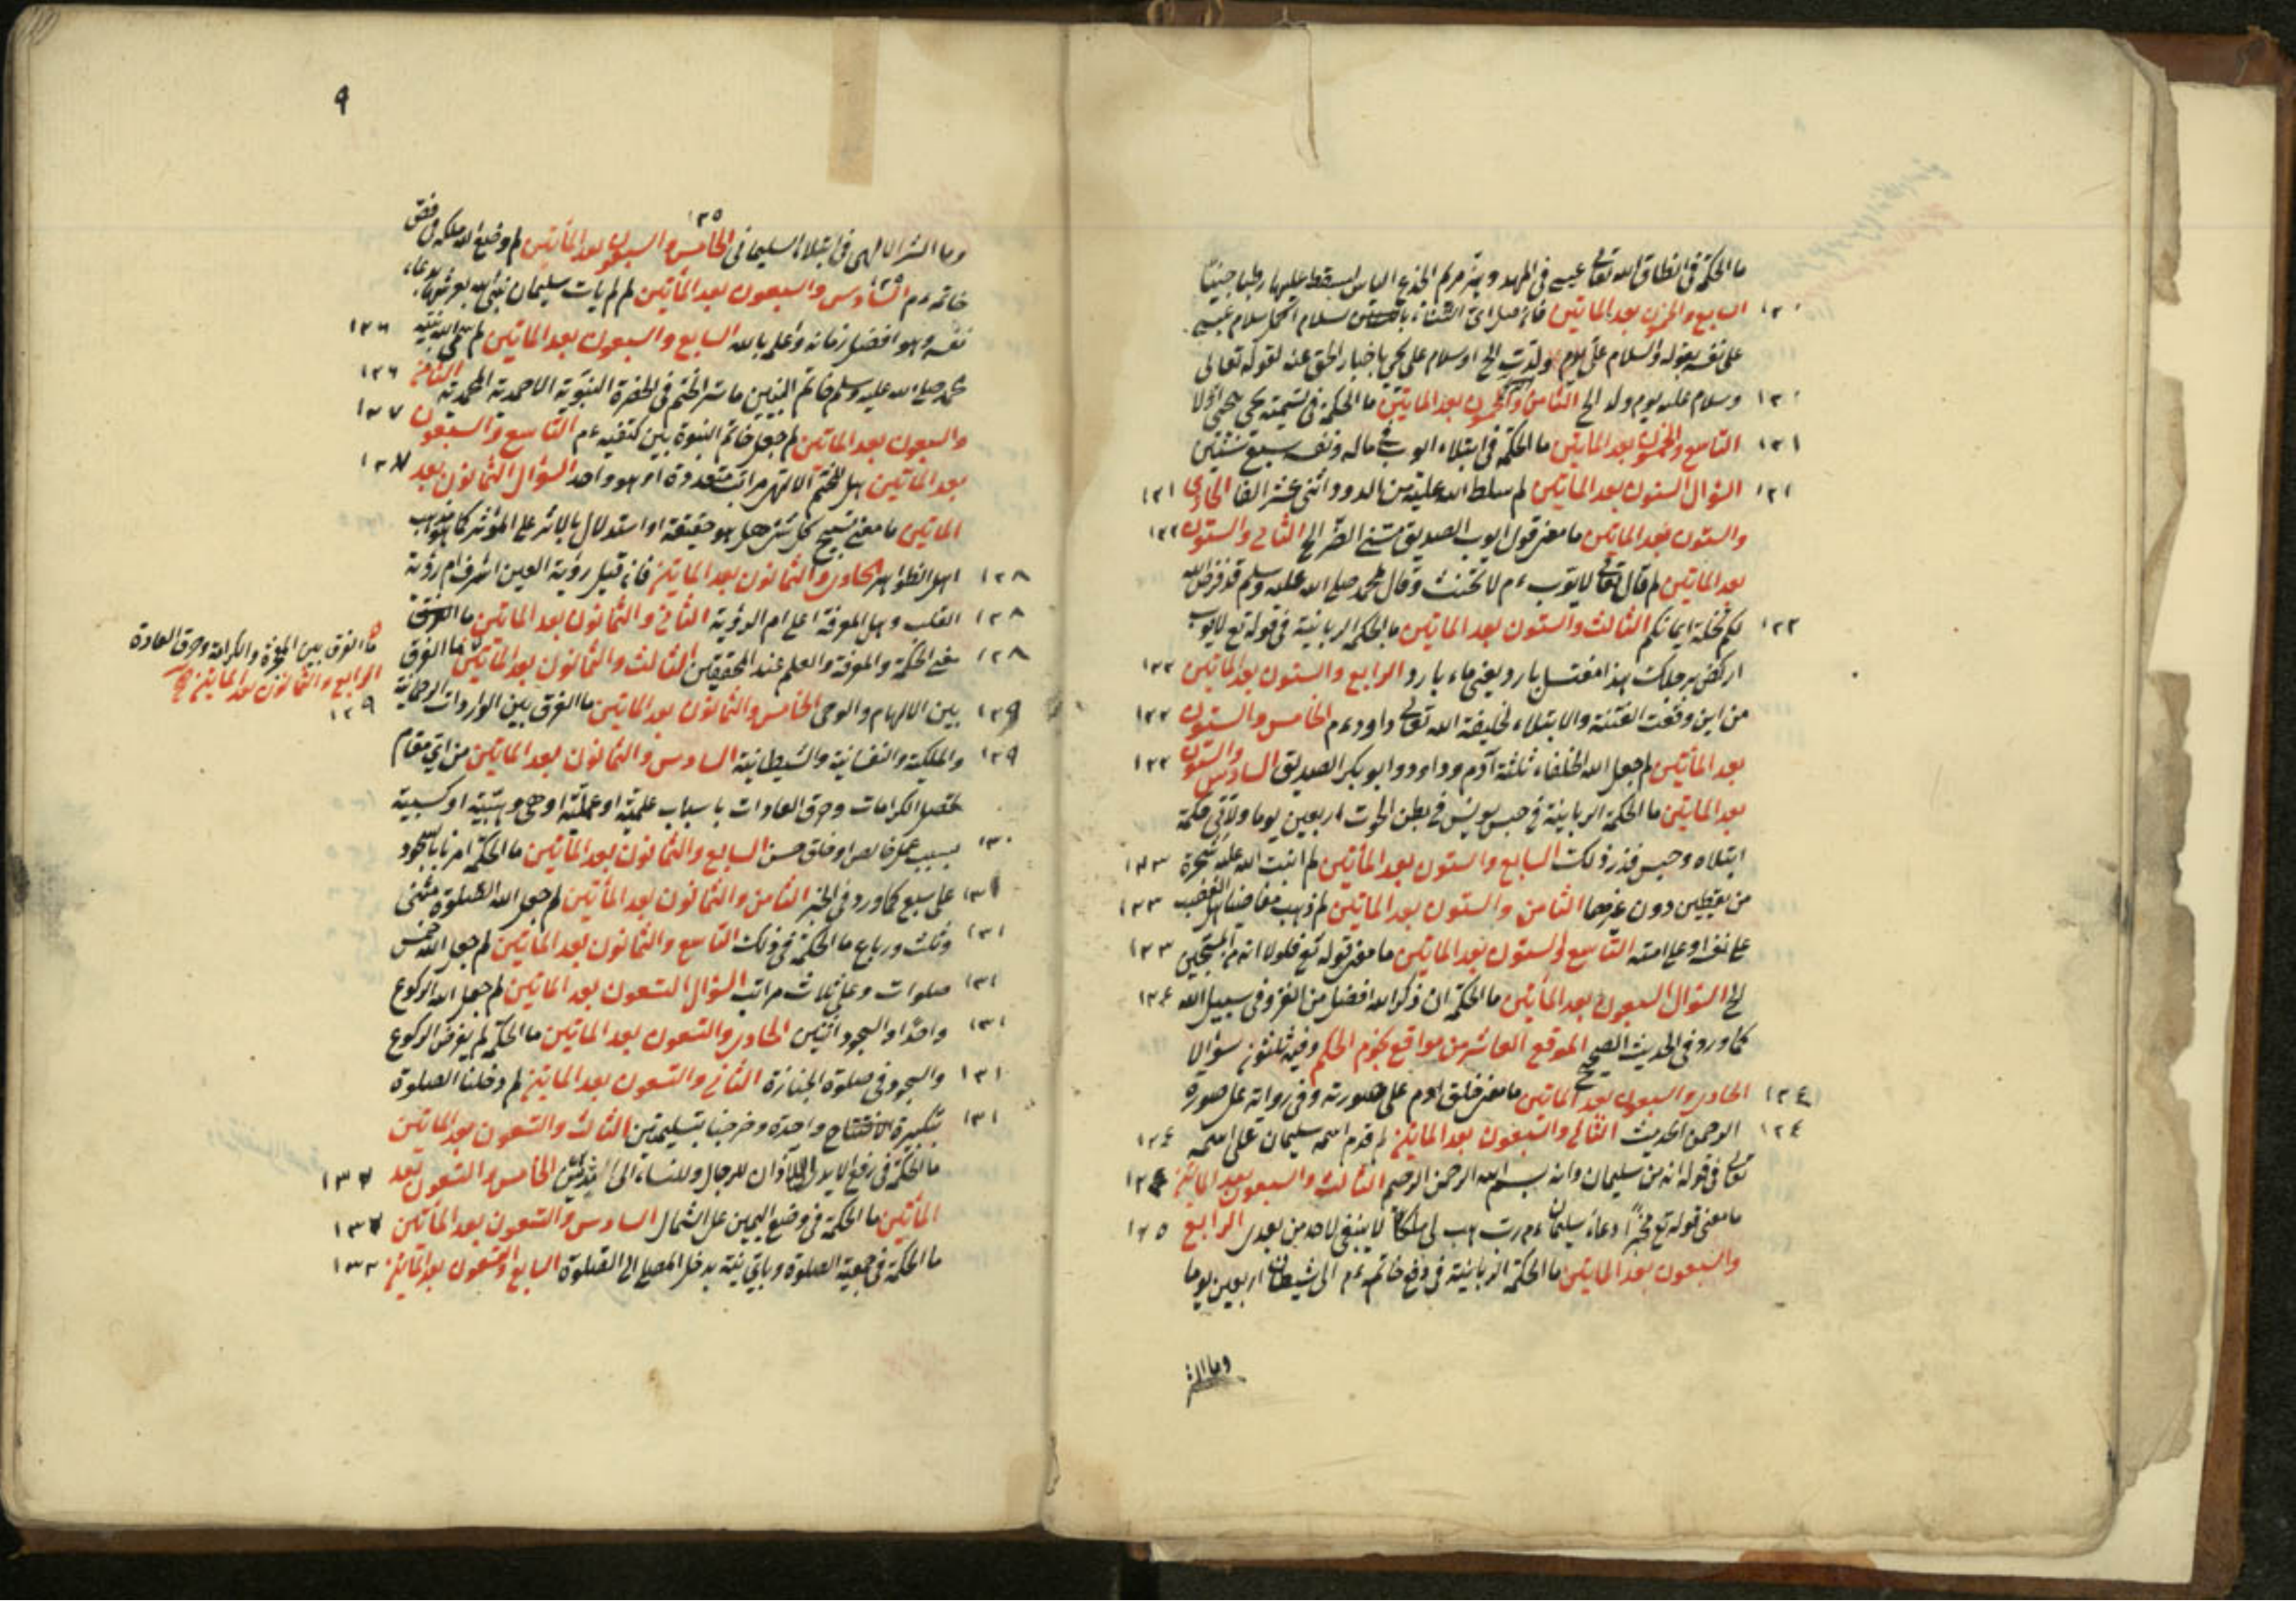 ما الحكمة في انطاق الله تعالى عيسى في المهد وهز مريم الجذع اليابس ليسقط عليها رطبا جنيا
١٣٠ السابع والخمسون بعد المأتين فان قيل اى سلام اكمل سلام عيسى
على نفسه بقوله والسلام على يوم ولدت الخ او سلام على يحيى باخبار الحق عنه لقوله تعالى
١٣٠ وسلام عليه يوم ولد الخ الثامن والخمسون بعد المأتين ما الحكمة في تسمية يحيى بيحيى اولا
١٣١ التاسع والخمسون بعد المأتين ما الحكمة في ابتلاء ايوب في ماله ونفسه سبع سنين
١٣١ السؤال الستون بعد المأتين لم سلط الله عليه من الدود اثنى عشر الفا الحادى ١٣١
والستون بعد المأتين ما معنى قول ايوب الصديق مسنى الضر الخ الثانى والستون ١٣٢
بعد المأتين لم قال تعالى لايوب ءم لا تحنث وقال لمحمد صلى الله عليه وسلم قد فرض الله
١٣٢ لكم تحلة ايمانكم الثالث والستون بعد المأتين ما الحكمة الربانية في قوله تع لايوب
اركض برجلك هذا مغتسل بارد يعنى ماء بارد الرابع والستون بعد المأتين ١٣٢
من اين وقعت الفتنة والابتلاء لخليفة الله تعالى داود ءم الخامس والستون ١٣٢
بعد المأتين لم جعل الله الخلفاء ثلثة آدم وداود وابو بكر الصديق السادس والستون ١٣٢
بعد المأتين ما الحكمة الربانية في حبس يونس في بطن الحوت اربعين يوما ولأى حكمة
ابتلاه وحبس قدر ذلك السابع والستون بعد المأتين لم انبت الله عليه شجرة ١٣٣
من يقطين دون غيرها الثامن والستون بعد المأتين لم ذهب مغاضبا هل الغضب ١٣٣
على نفسه او على امته التاسع والستون بعد المأتين ما معنى قوله تع فلولا انه من المسبحين ١٣٣
الخ السؤال السبعون بعد المأتين ما الحكمة ان ذكر الله افضل من الغزو في سبيل الله ١٣٤
كما ورد في الحديث الصحيح الموقع العاشر من مواقع نجوم الحكم وفيه ثلثون سؤالا
١٣٤ الحادى والسبعون بعد المأتين ما معنى خلق ادم على صورته وفي رواية على صورة
١٣٤ الرحمن الحديث الثانى والسبعون بعد المأتين لم قدم اسمه سليمان على اسمه ١٣٤
تعالى في قوله انه من سليمان وانه بسم الله الرحمن الرحيم الثالث والسبعون بعد المأتين ١٣٤
ما معنى قوله تع مخبرا دعاء سليمان ءم رب هب لى ملكا لا ينبغى لاحد من بعدى الرابع ١٣٥
والسبعون بعد المأتين ما الحكمة الربانية في دفع خاتمه ءم الى شيطان اربعين يوما
وما السر
٩
١٣٥
وما السر الالهى في ابتلاء السليمانى الخامس والسبعون بعد المأتين لم وضع الله ملكه في فص
خاتمه ءم السادس والسبعون بعد المأتين لم لم يأت سليمان بعرشها بدعاء
نفسه وهو افضل زمانه واعلم بالله السابع والسبعون بعد المأتين لم ١٣٦
محمد صلى الله عليه وسلم خاتم النبيين ما سر الختم في الحضرة النبوية الاحمدية المحمدية الثامن ١٣٦
والسبعون بعد المأتين لم جعل خاتم النبوة بين كتفيه ءم التاسع والسبعون ١٣٧
بعد المأتين هل للختم الالهى مراتب متعددة او هو واحد السؤال الثمانون بعد ١٣٧
المأتين ما معنى تسبيح كل شئ هل هو حقيقة او استدلال بالاثر على المؤثر كما هو مذهب
١٣٨ اهل الظواهر الحادى والثمانون بعد المأتين فان قيل رؤية العين اشرف ام رؤية
١٣٨ القلب وهل المعرفة اعلى ام الرؤية الثانى والثمانون بعد المأتين ما الفرق
١٣٨ معنى الحكمة والمعرفة والعلم عند المحققين الثالث والثمانون بعد المأتين ما الفرق
ما الفرق بين المعجزة والكرامة وخرق العادة
الرابع والثمانون بعد المأتين صح
١٣٩
١٣٩ بين الالهام والوحى الخامس والثمانون بعد المأتين ما الفرق بين الواردات الرحمانية
١٣٩ والملكية والنفسانية والشيطانية السادس والثمانون بعد المأتين من اى مقام
تحصل الكرامات وخرق العادات باسباب علمية او عملية او هى وهبية او كسبية
١٣٠ بسبب عمل خالص او خلق حسن السابع والثمانون بعد المأتين ما الحكمة امرنا بالسجود
١٣١ على سبع كما ورد في الخبر الثامن والثمانون بعد المأتين لم جعل الله الصلوة مثنى
١٣١ وثلث ورباع ما الحكمة في ذلك التاسع والثمانون بعد المأتين لم جعل الله خمس
١٣١ صلوات وعلى ثلاث مراتب السؤال التسعون بعد المأتين لم جعل الله الركوع
١٣١ واحدا والسجود اثنين الحادى والتسعون بعد المأتين ما الحكمة لم يفرض الركوع
١٣١ والسجود في صلوة الجنازة الثانى والتسعون بعد المأتين لم دخلنا الصلوة
١٣١ بتكبيرة الافتتاح واحدة وخرجنا بتسليمتين الثالث والتسعون بعد المأتين
ما الحكمة في رفع الايدى الى الآذان للرجال وللنساء الى الخامس والتسعون بعد ١٣٢
المأتين ما الحكمة في وضع اليمين على الشمال السادس والتسعون بعد المأتين ١٣٢
ما الحكمة في جمعية الصلوة وباى نية يدخل المصلى الى الصلوة السابع والتسعون بعد المأتين ١٣٢